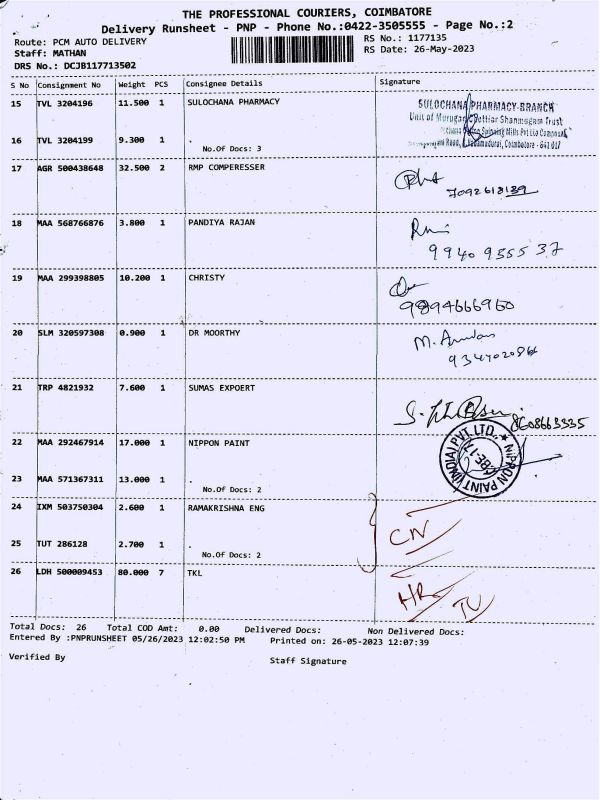 THE PROFESSIONAL COURIERS, COIMBATORE
Delivery Runsheet - PNP - Phone No.:0422-3505555 - Page No.:2
Route: PCM AUTO DELIVERY
RS No.: 1177135
Staff: MATHAN
RS Date: 26-May-2023
DRS No.: DCJB117713502
S No Consignment No Weight PCS Consignee Details Signature
15 TVL 3204196 11.500 1 SULOCHANA PHARMACY
SULOCHANA PHARMACY-BRANCH
Unit of Murugan Chettiar Shanmugam Trust
Spinning Mills Pvt Ltd Compound,
Road, Coimbatore - 641 017
16 TVL 3204199 9.300 1 .
No.Of Docs: 3
17 AGR 500438648 32.500 2 RMP COMPERESSER
7092618139
18 MAA 568766876 3.800 1 PANDIYA RAJAN
99409355 37
19 MAA 299398805 10.200 1 CHRISTY
9894666960
20 SLM 320597308 0.900 1 DR MOORTHY
M.
21 TRP 4821932 7.600 1 SUMAS EXPOERT
8608663335
22 MAA 292467914 17.000 1 NIPPON PAINT
NIPPON PAINT (INDIA) PVT. LTD.
CBE-17
23 MAA 571367311 13.000 1 .
No.Of Docs: 2
24 IXM 503750304 2.600 1 RAMAKRISHNA ENG
CN
25 TUT 286128 2.700 1 .
No.Of Docs: 2
26 LDH 500009453 80.000 7 TKL
Total Docs: 26 Total COD Amt: 0.00 Delivered Docs: Non Delivered Docs:
Entered By :PNPRUNSHEET 05/26/2023 12:02:50 PM Printed on: 26-05-2023 12:07:39
Verified By
Staff Signature